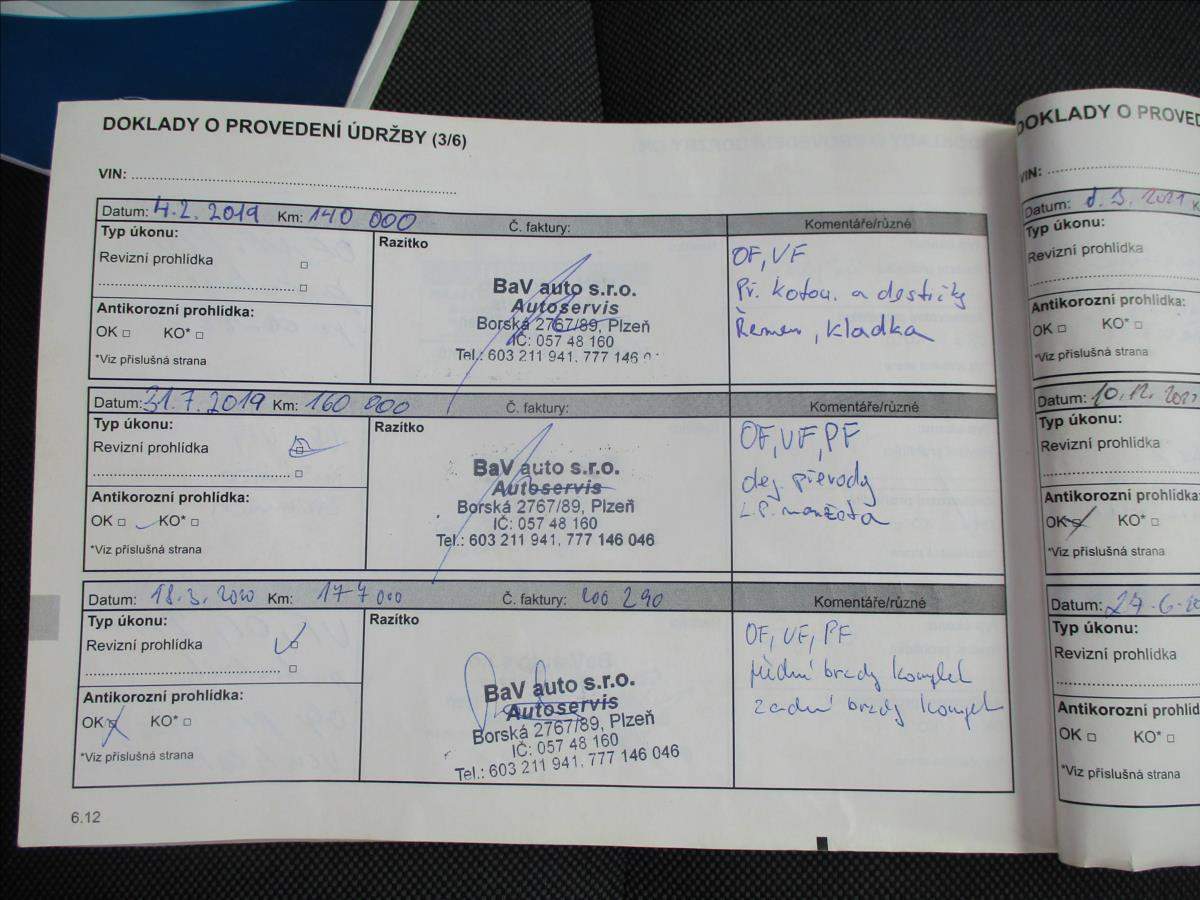 DOKLADY O PROVEDENÍ ÚDRŽBY (3/6)
VIN:
Datum: 4.2. 2019 Km: 140 000 Č. faktury: Komentáře/různé
Typ úkonu:
Revizní prohlídka
Antikorozní prohlídka:
OK KO*
*Viz příslušná strana
Razítko
BaV auto s.r.o.
Autoservis
Borská 2767/89, Plzeň
IČ: 057 48 160
Tel.: 603 211 941, 777 146 0
OF, VF
Př. kotou. a destičky
Řemen, kladka
Datum: 31.7.2019 Km: 160 000 Č. faktury: Komentáře/různé
Typ úkonu:
Revizní prohlídka
Antikorozní prohlídka:
OK KO*
*Viz příslušná strana
Razítko
BaV auto s.r.o.
Autoservis
Borská 2767/89, Plzeň
IČ: 057 48 160
Tel.: 603 211 941, 777 146 046
OF, VF, PF
olej převody
L.P. manžeta
Datum: 18.3. 2020 Km: 177 000 Č. faktury: 200 290 Komentáře/různé
Typ úkonu:
Revizní prohlídka
Antikorozní prohlídka:
OK KO*
*Viz příslušná strana
Razítko
BaV auto s.r.o.
Autoservis
Borská 2767/89, Plzeň
IČ: 057 48 160
Tel.: 603 211 941, 777 146 046
OF, VF, PF
přední brzdy komplet
zadní brzdy komplet
6.12
DOKLADY O PROVED
VIN:
Datum: 3. 2021 K
Typ úkonu:
Revizní prohlídka
Antikorozní prohlídka:
OK KO*
*Viz příslušná strana
Datum: 10.12. 202
Typ úkonu:
Revizní prohlídka
Antikorozní prohlídka
OK KO*
*Viz příslušná strana
Datum: 27.6.
Typ úkonu:
Revizní prohlídka
Antikorozní prohlíd
OK KO*
*Viz příslušná strana